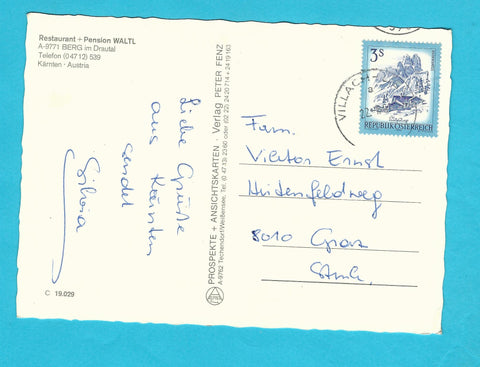 Restaurant + Pension WALTL
A-9771 BERG im Drautal
Telefon (04712) 539
Kärnten · Austria
Liebe Grüße
aus Kärnten
sendet
Silvia
C 19.029
PROSPEKTE + ANSICHTSKARTEN · Verlag PETER FENZ
A-9762 Techendorf/Weißensee, Tel. (0 47 13) 23 60 oder (02 22) 24 20 714 + 24 19 163
3S
REPUBLIK ÖSTERREICH
VILLACH
22
Fam.
Viktor Ernst
8010 Graz
Stmk.